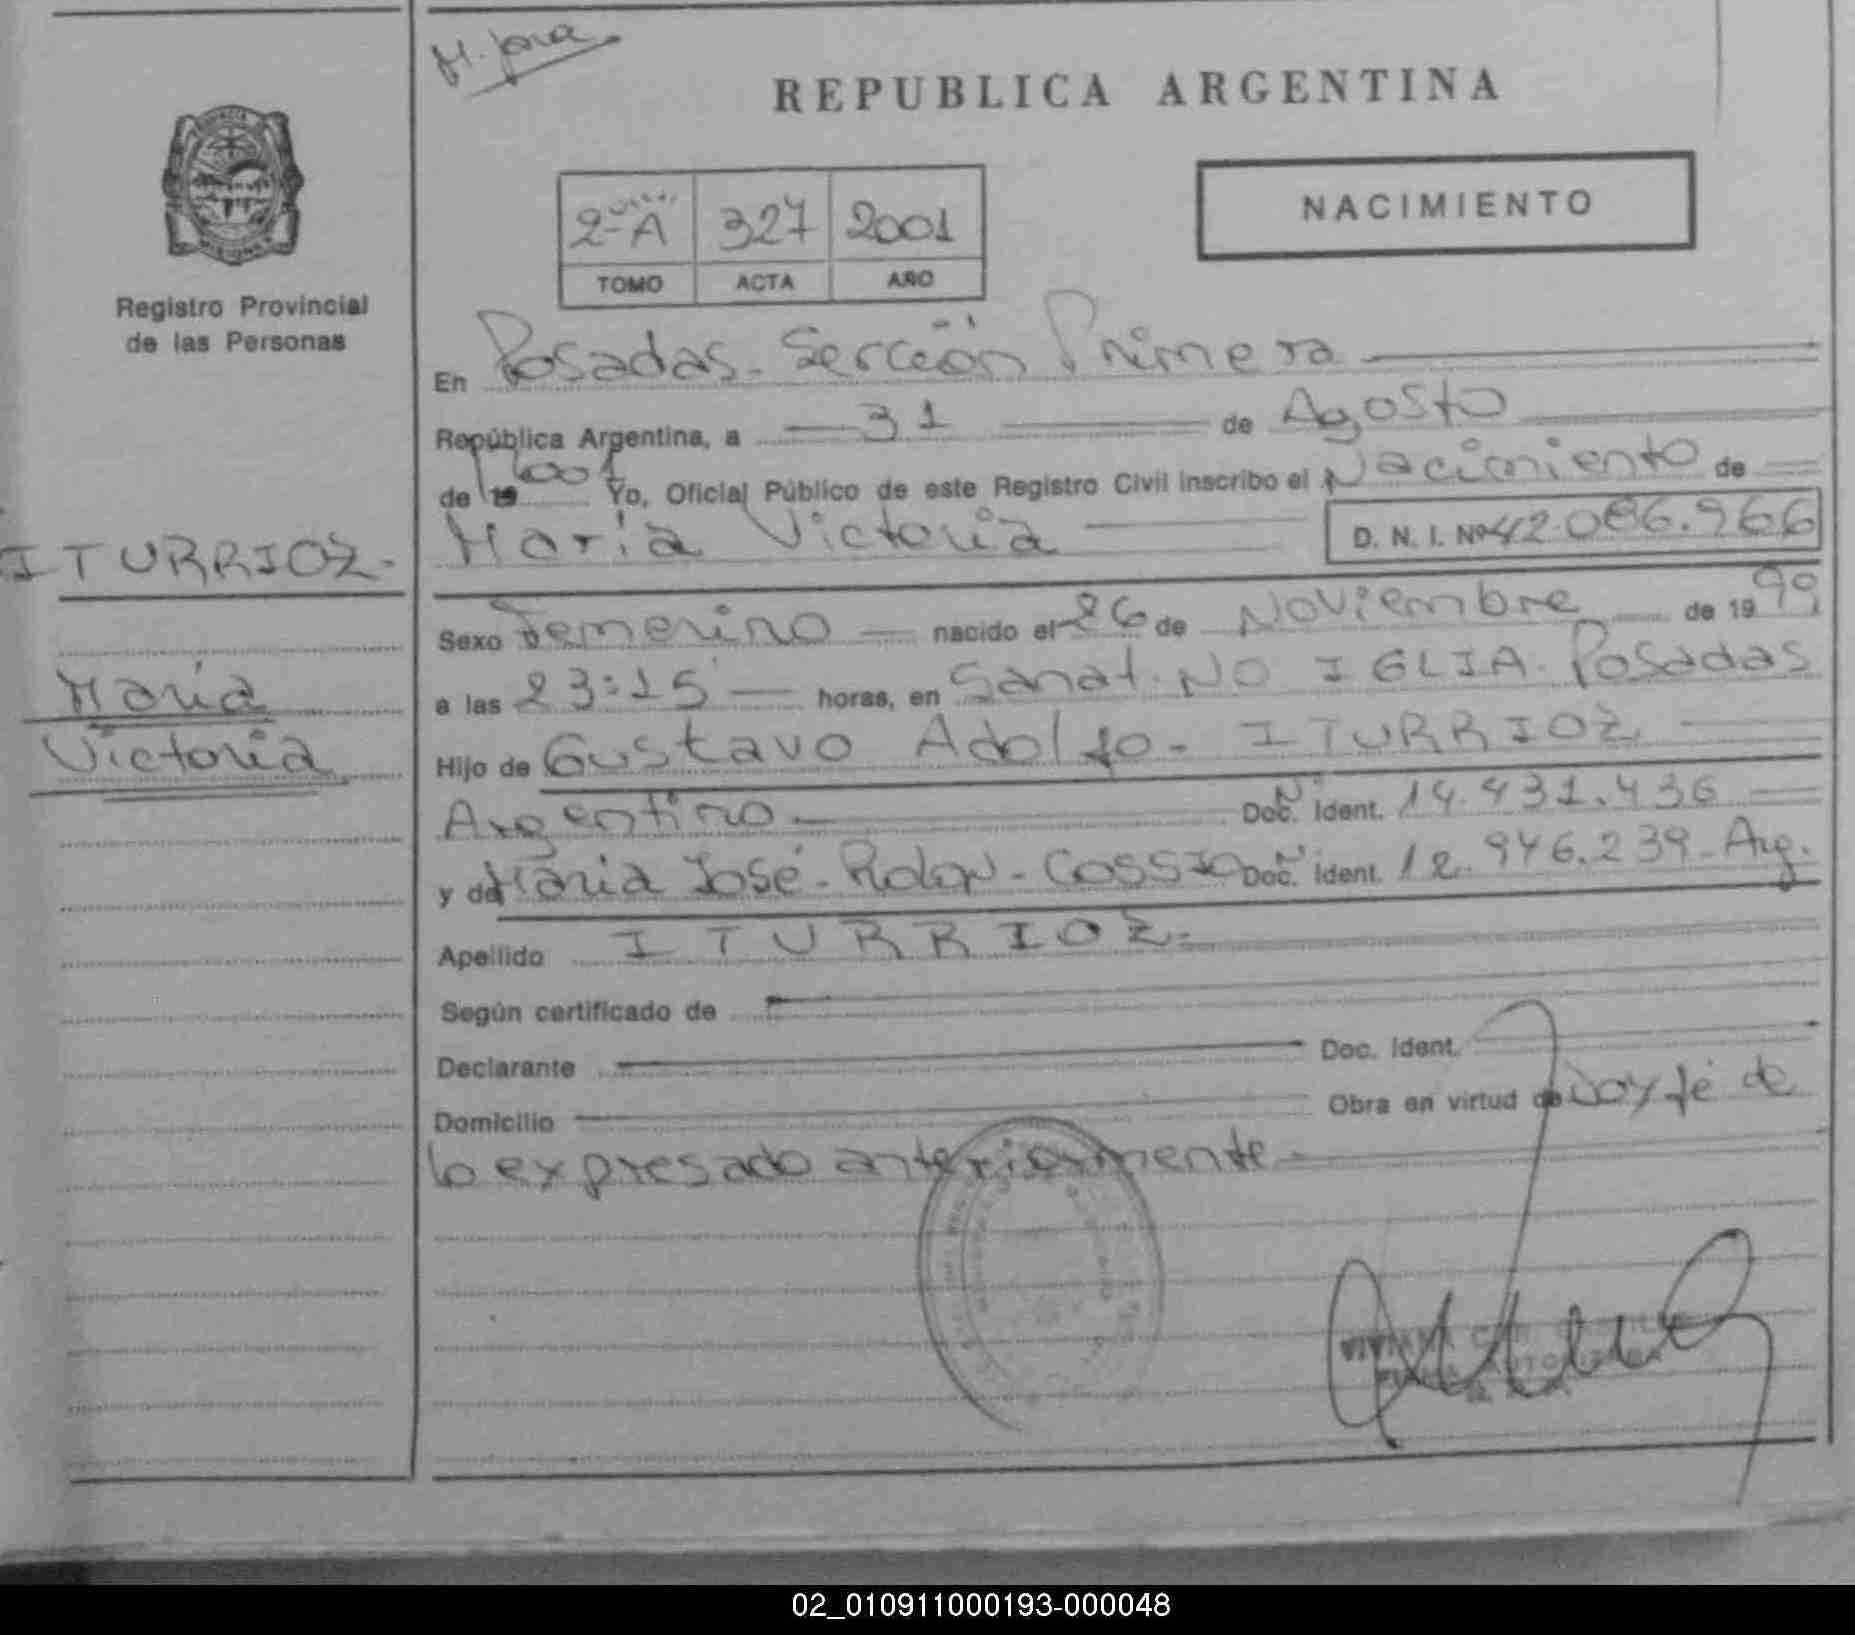 REPUBLICA ARGENTINA
NACIMIENTO
2-A 327 2001
TOMO ACTA AÑO
Registro Provincial
de las Personas
En Posadas. Sección Primera
República Argentina, a 31 de Agosto
de 19 2001 Yo, Oficial Público de este Registro Civil inscribo el Nacimiento de
ITURRIOZ.
María Victoria D. N. I. Nº 42.086.966
Sexo Femenino nacido el 26 de Noviembre de 1999
María
Victoria
a las 23:15 horas, en Sanat. Posadas
Hijo de Gustavo Adolfo. ITURRIOZ
Argentino Doc. Ident. Nº 14.431.436
y de María José. Rolon. COSSIO Doc. Ident. Nº 12.946.239. Arg.
Apellido ITURRIOZ.
Según certificado de
Declarante Doc. Ident.
Domicilio Obra en virtud de Doy fé de
lo expresado anteriormente
02_010911000193-000048